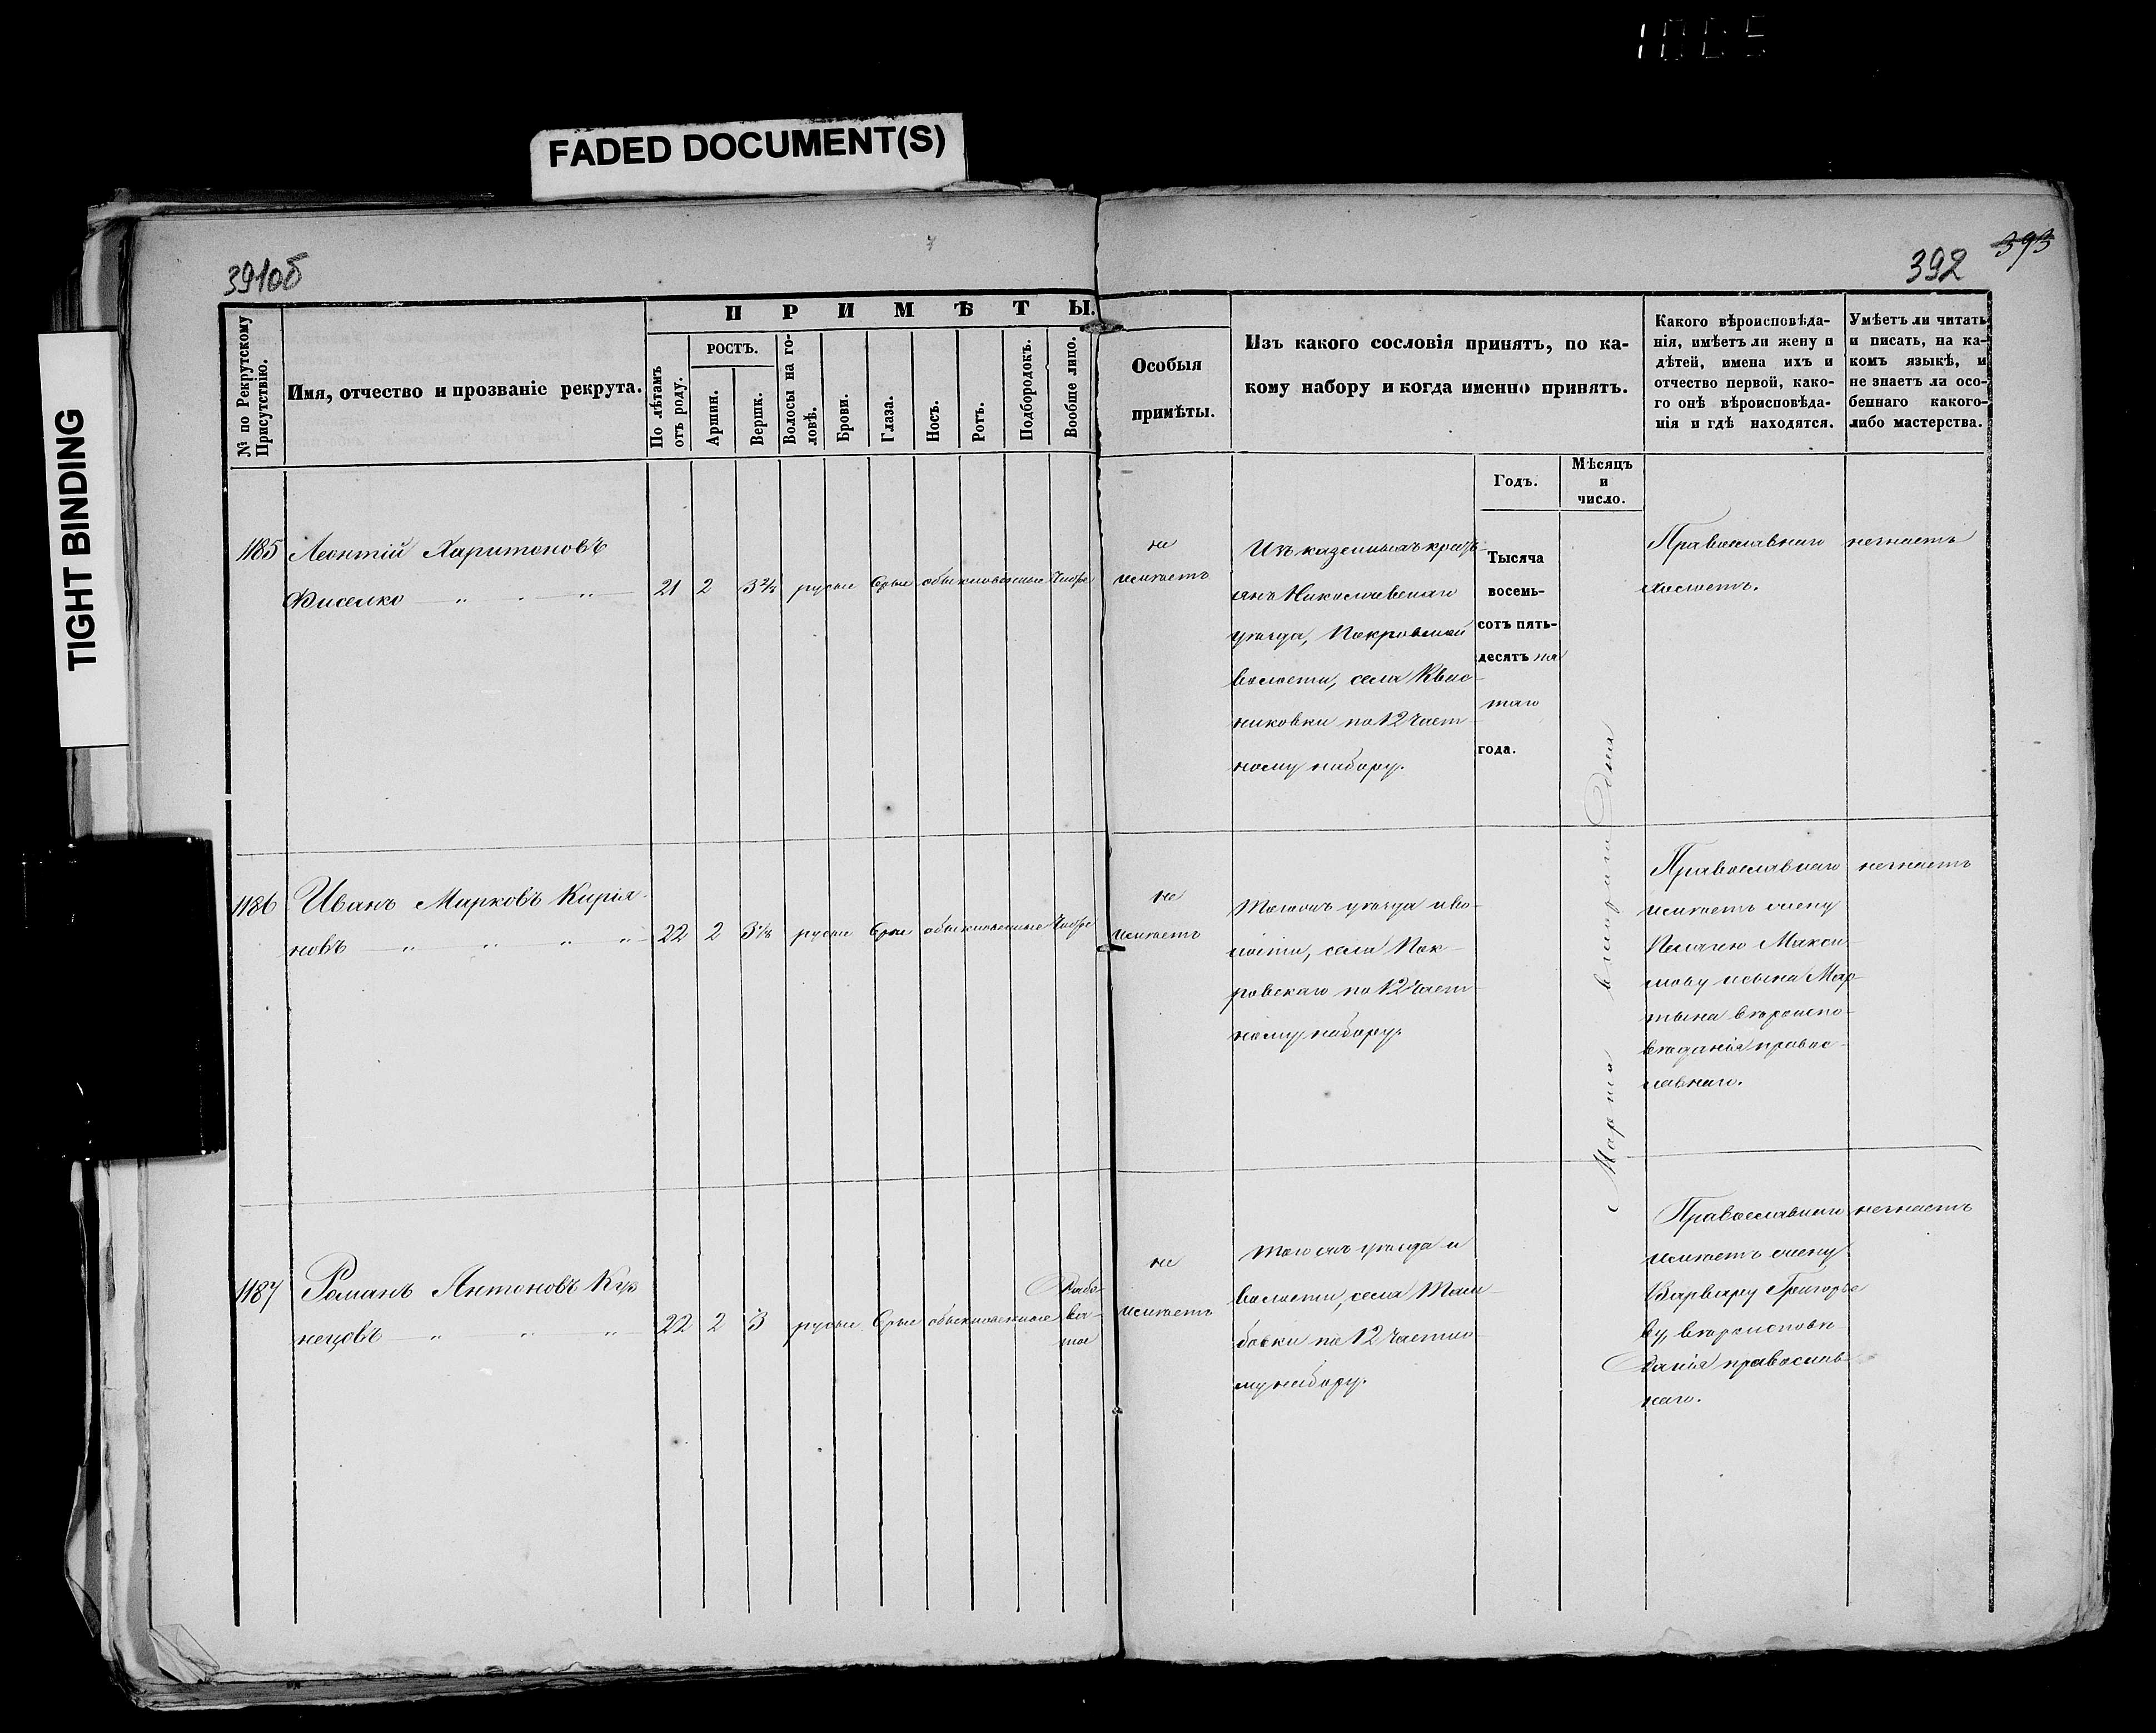 1005
FADED DOCUMENT(S)
TIGHT BINDING
391об
392
393
П Р И М Ѣ Т Ы.
№ по Рекрутскому
Присутствію.
Имя, отчество и прозваніе рекрута.
По лѣтамъ
отъ роду.
РОСТЪ.
Аршин.
Вершк.
Волосы на го-
ловѣ.
Брови.
Глаза.
Носъ.
Ротъ.
Подбородокъ.
Вообще лицо.
Особыя
примѣты.
Изъ какого сословія принятъ, по ка-
кому набору и когда именно принятъ.
Годъ.
Мѣсяцъ
и
число.
Какого вѣроисповѣда-
нія, имѣетъ ли жену и
дѣтей, имена ихъ и
отчество первой, како-
го онѣ вѣроисповѣда-
нія и гдѣ находятся.
Умѣетъ ли читать
и писать, на ка-
комъ языкѣ, и
не знаетъ ли осо-
беннаго какого-
либо мастерства.
1185
Леонтій Харитоновъ
Фисенко — „ - „ —
21 2 3 2/8 русые Сѣрые обыкновенные Чистое
не
имѣетъ
Изъ казенныхъ кресть-
янъ Николаевскаго
уѣзда, Покровской
волости, села Квас-
никовки по 12 част-
ному набору.
Тысяча
восемь-
сотъ пять-
десятъ пя
таго
года.
Марта втораго дня
Православнаго
Холостъ.
незнаетъ
1186
Иванъ Марковъ Кирія-
новъ — „ „ „ „ —
22 2 3 1/8 русые Сѣрые обыкновенные Чистое
не
имѣетъ
Тогожъ уѣзда и во-
лости, села Пок-
ровскаго по 12 част-
ному набору.
Православнаго
имѣетъ жену
Пелагею Макси-
мову и сына Мар-
тына вѣроиспо-
вѣданія правос-
лавнаго.
незнаетъ
1187
Романъ Антоновъ Куз
нецовъ — „ „ „ —
22 2 3 русые Сѣрые обыкновенные Рябо-
ва-
тое
не
имѣетъ
Того жъ уѣзда и
волости, села Там-
бовки по 12 частно-
му набору.
Православнаго
имѣетъ жену
Варвару Григорье
ву, вѣроисповѣ
данія православ-
наго.
незнаетъ